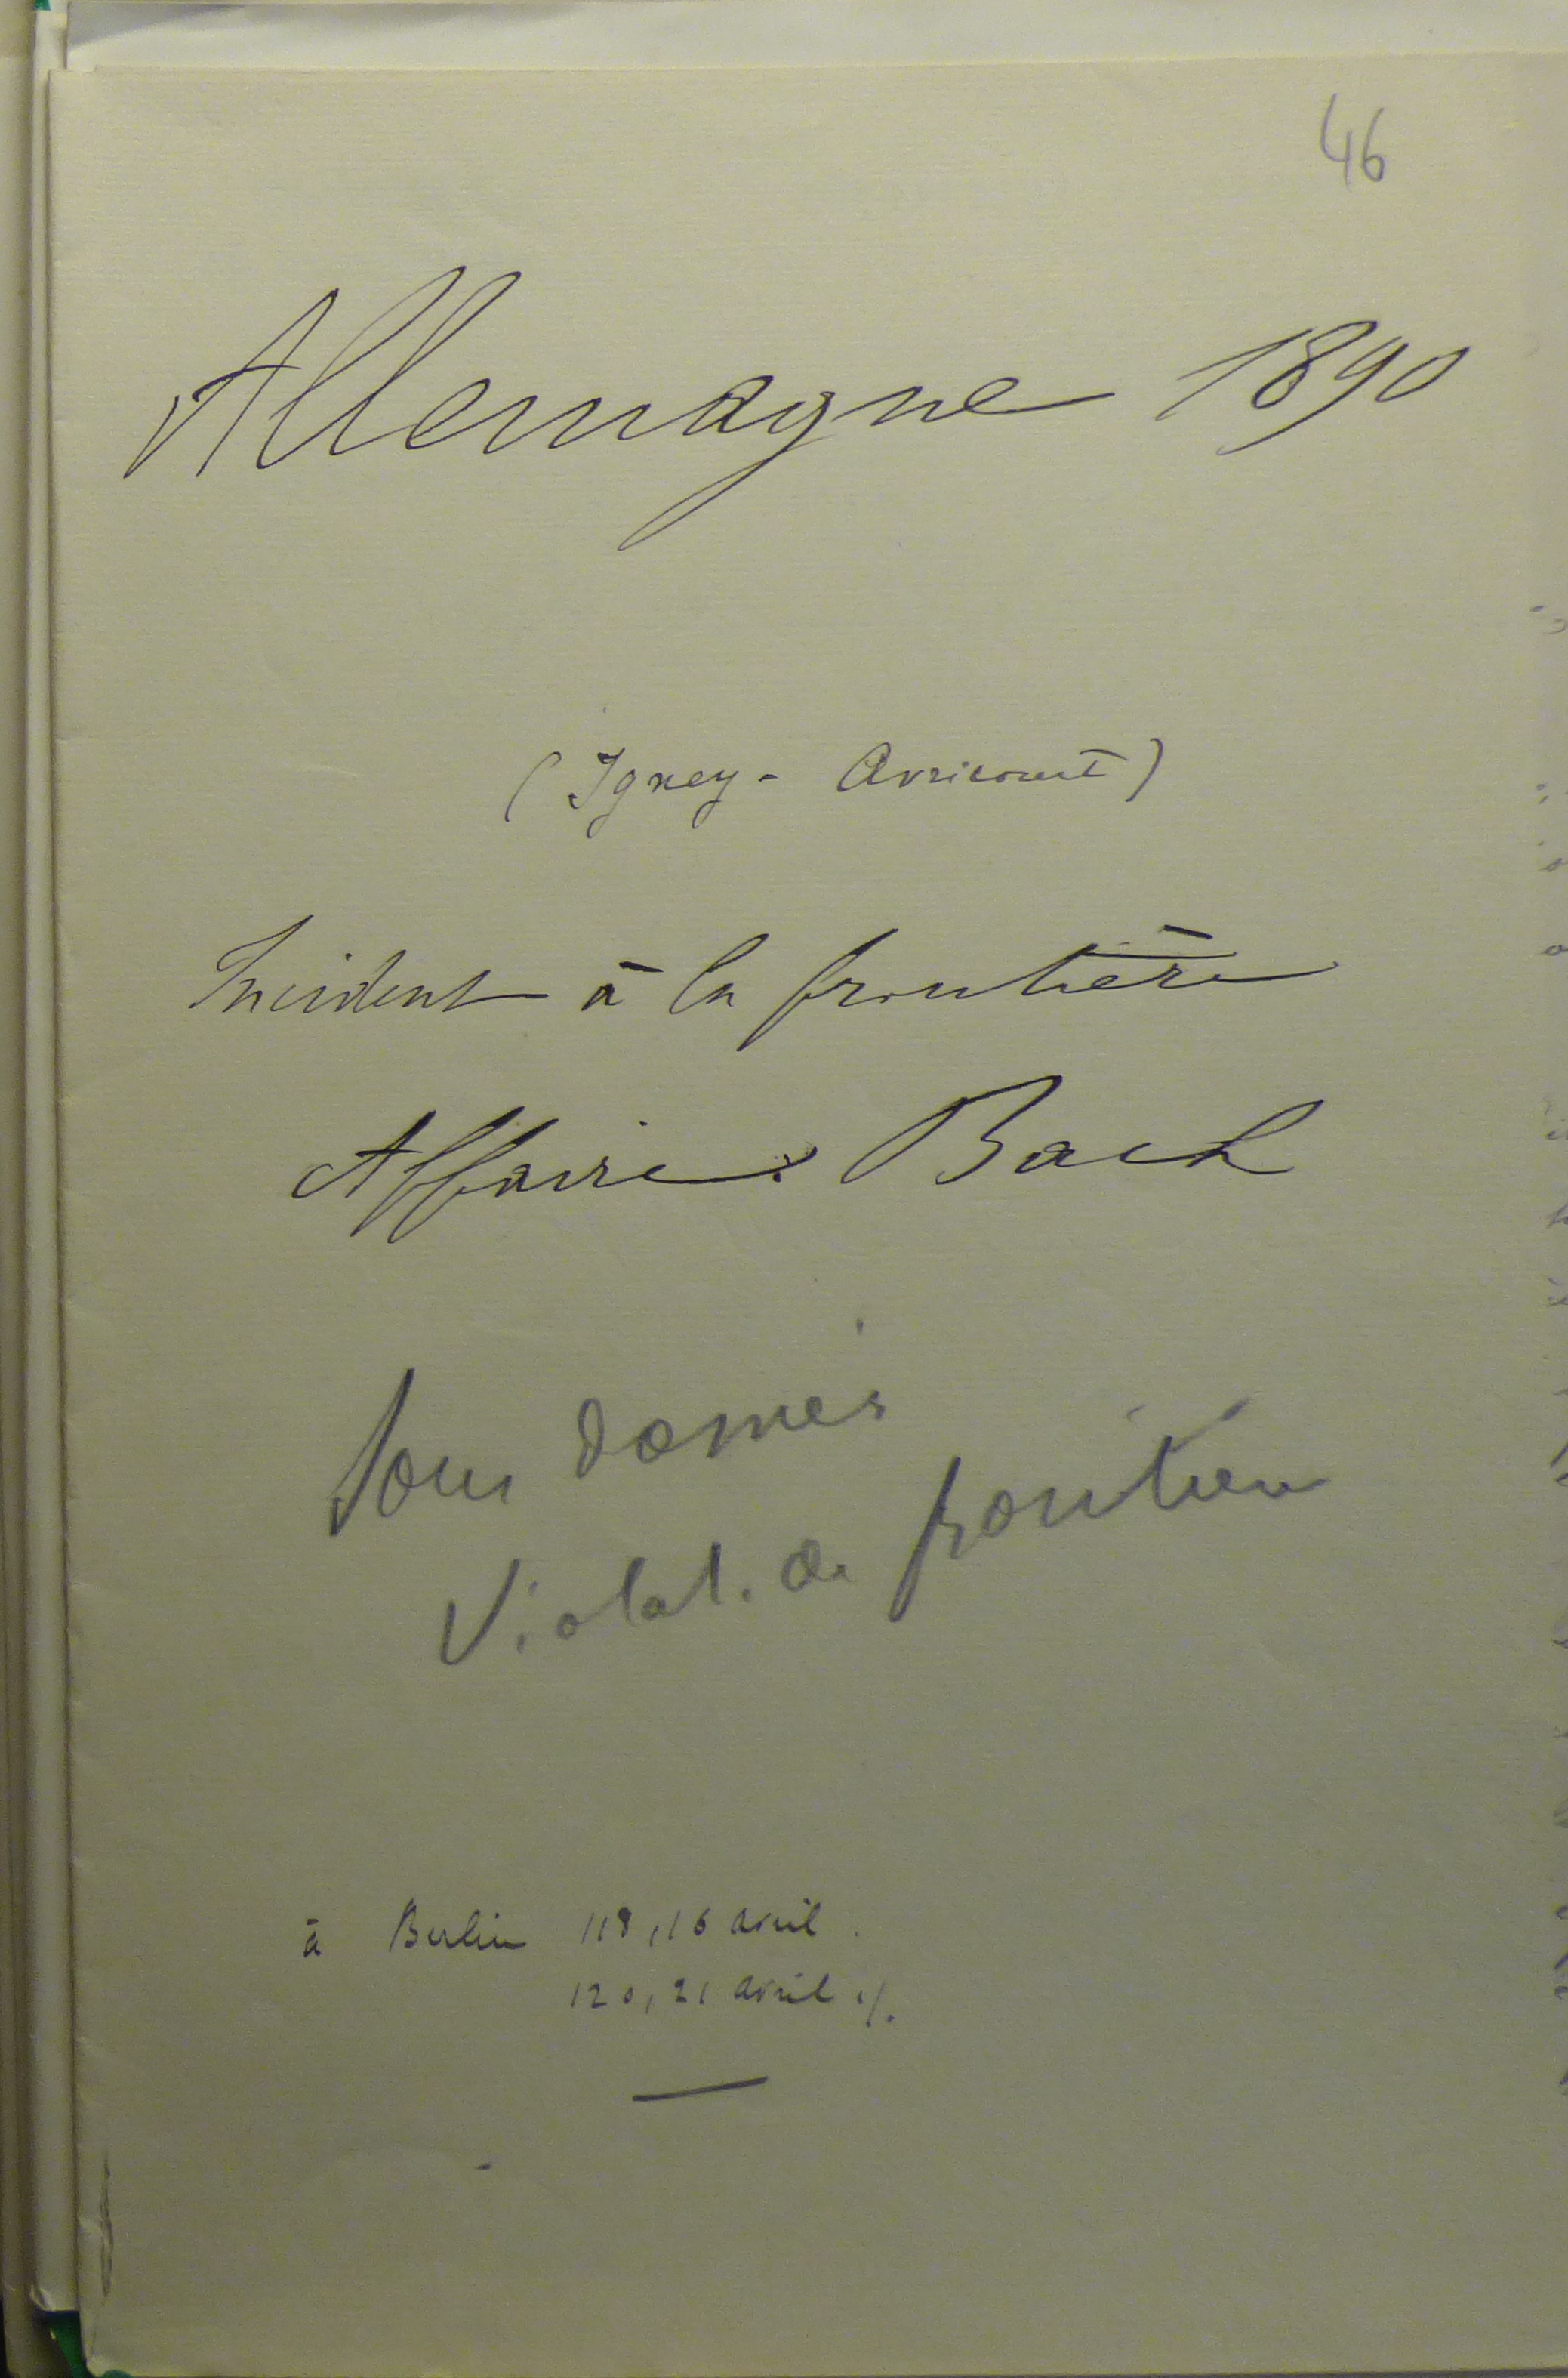 46
Allemagne 1890
(Igney - Avricourt)
Incident à la frontière
Affaire Bach
Sous domes
Violat. de frontière
à Berlin 118, 16 avril.
120, 21 avril ./.